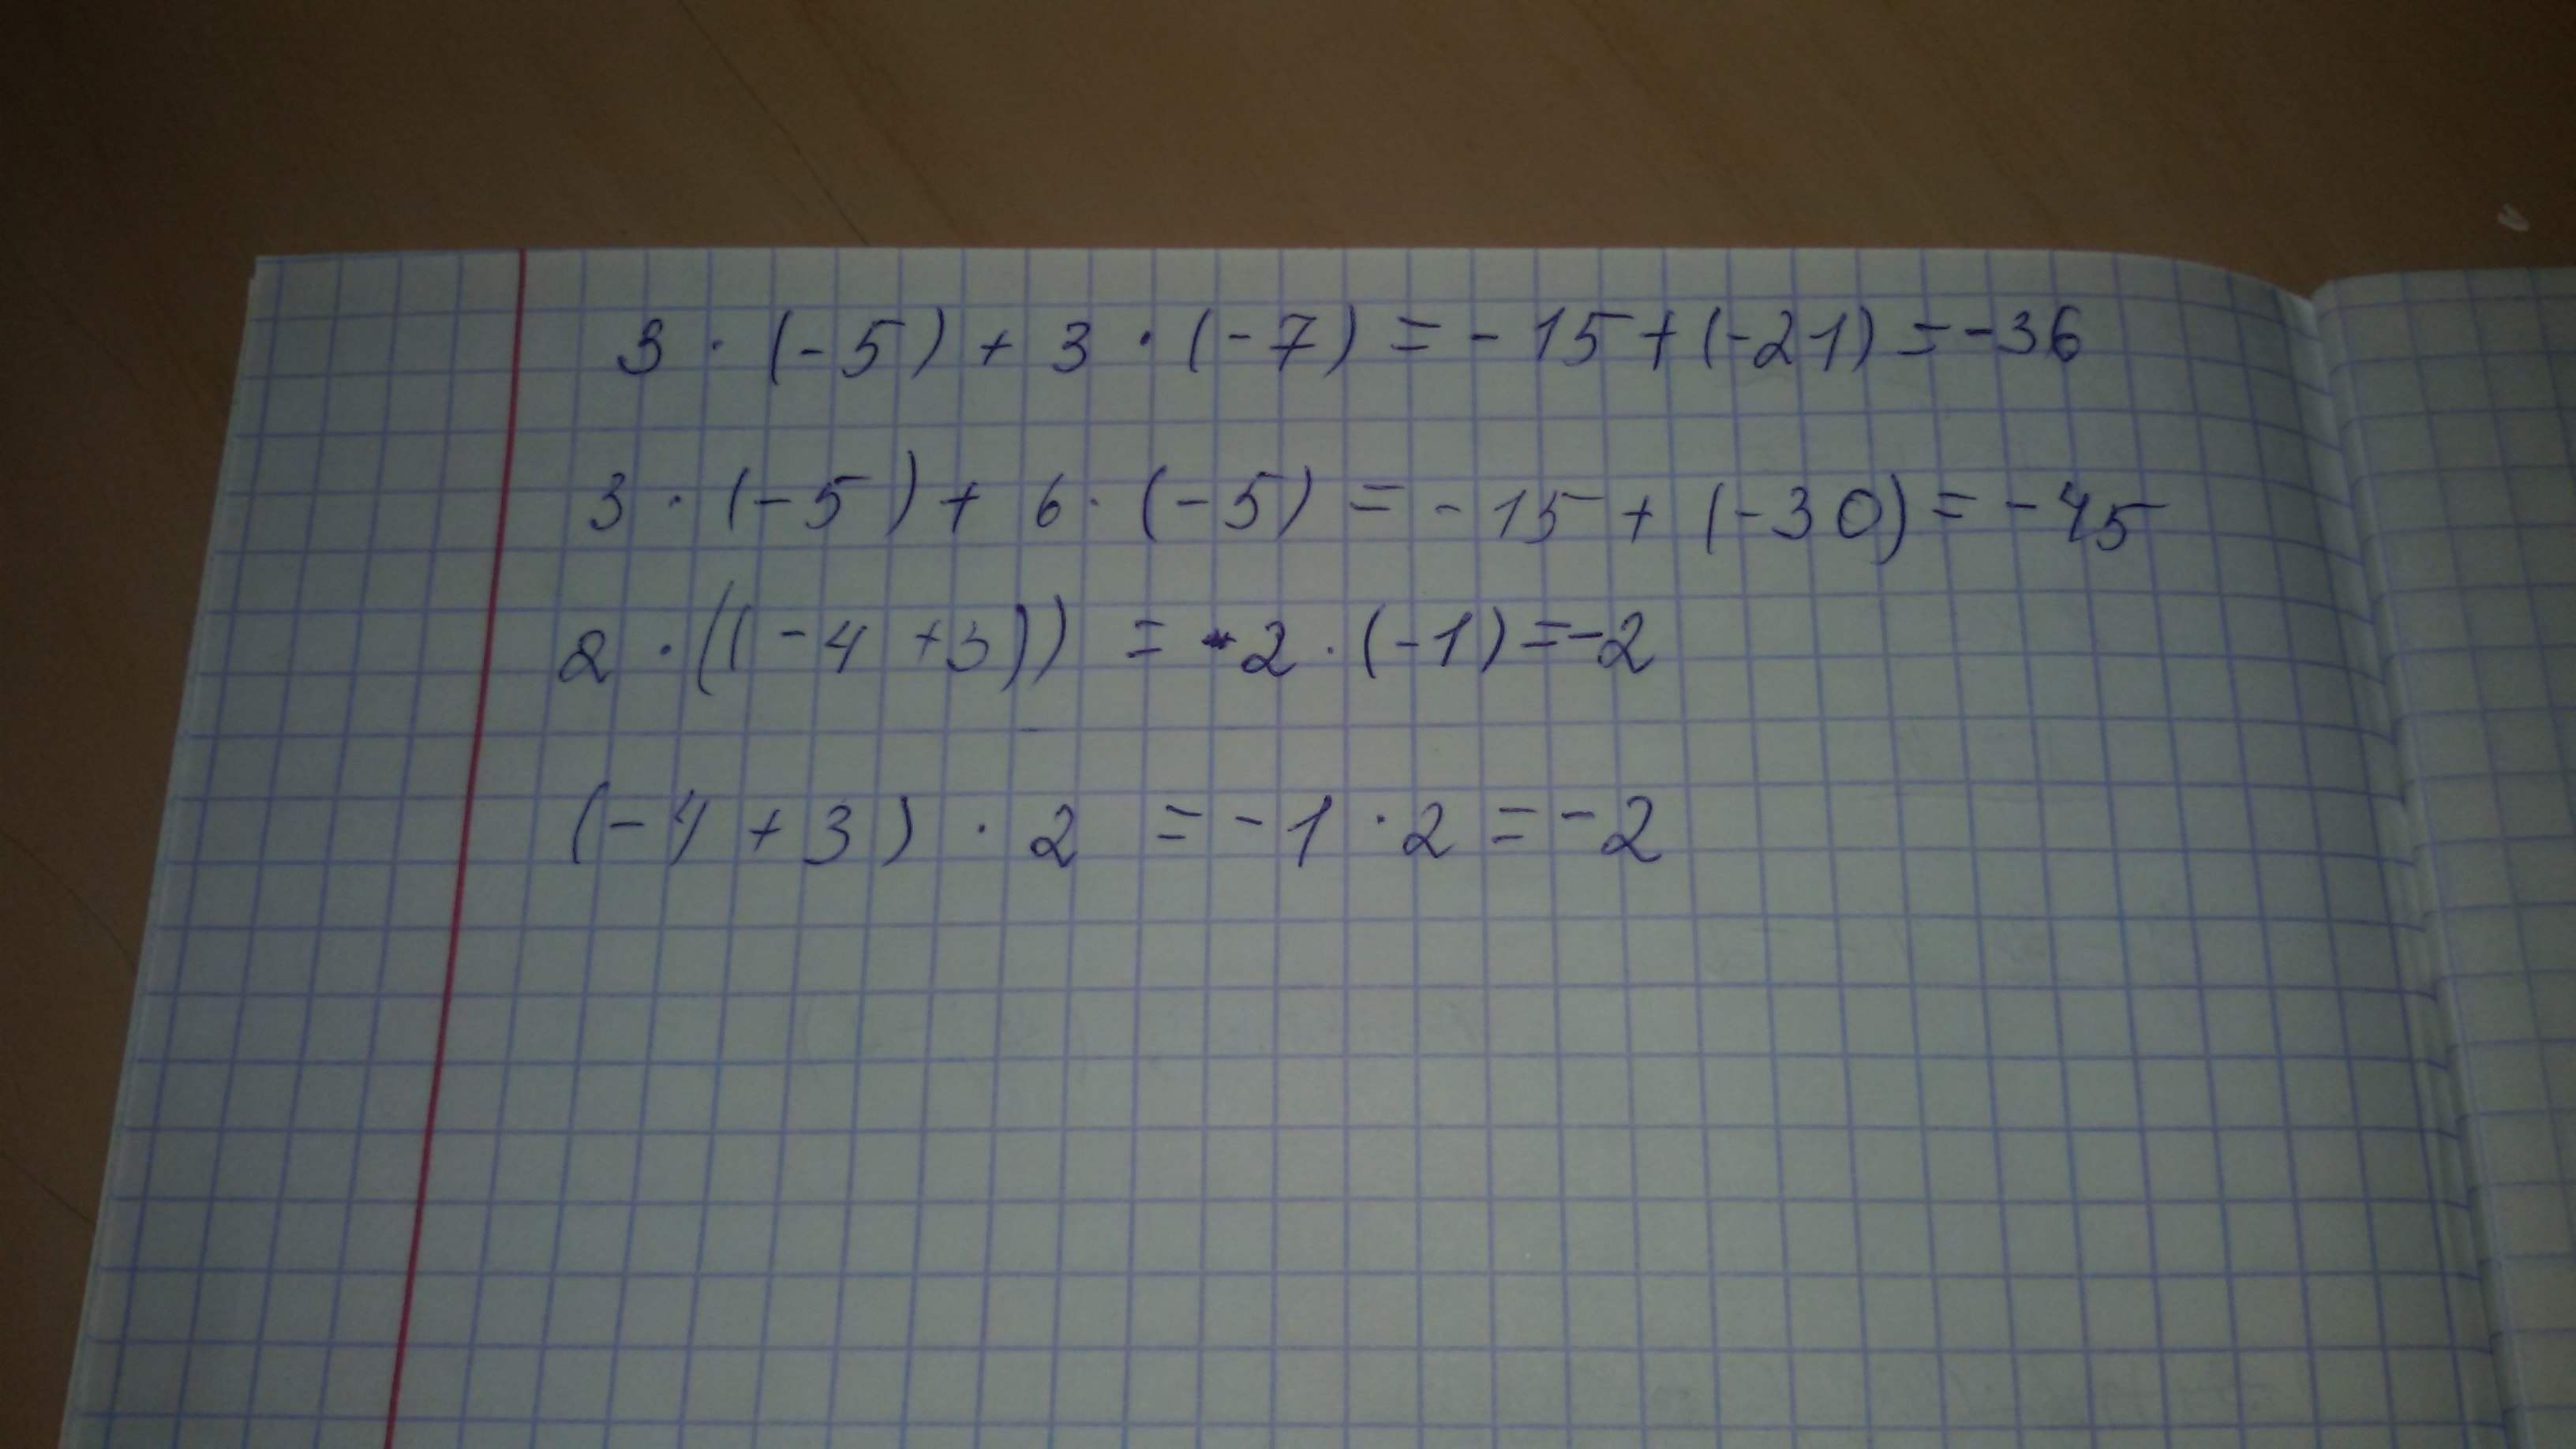 3 · (-5) + 3 · (-7) = -15 + (-21) = -36
3 · (-5) + 6 · (-5) = -15 + (-30) = -45
2 · ((-4 +3)) = 2 · (-1) = -2
(-4 + 3) · 2 = -1 · 2 = -2